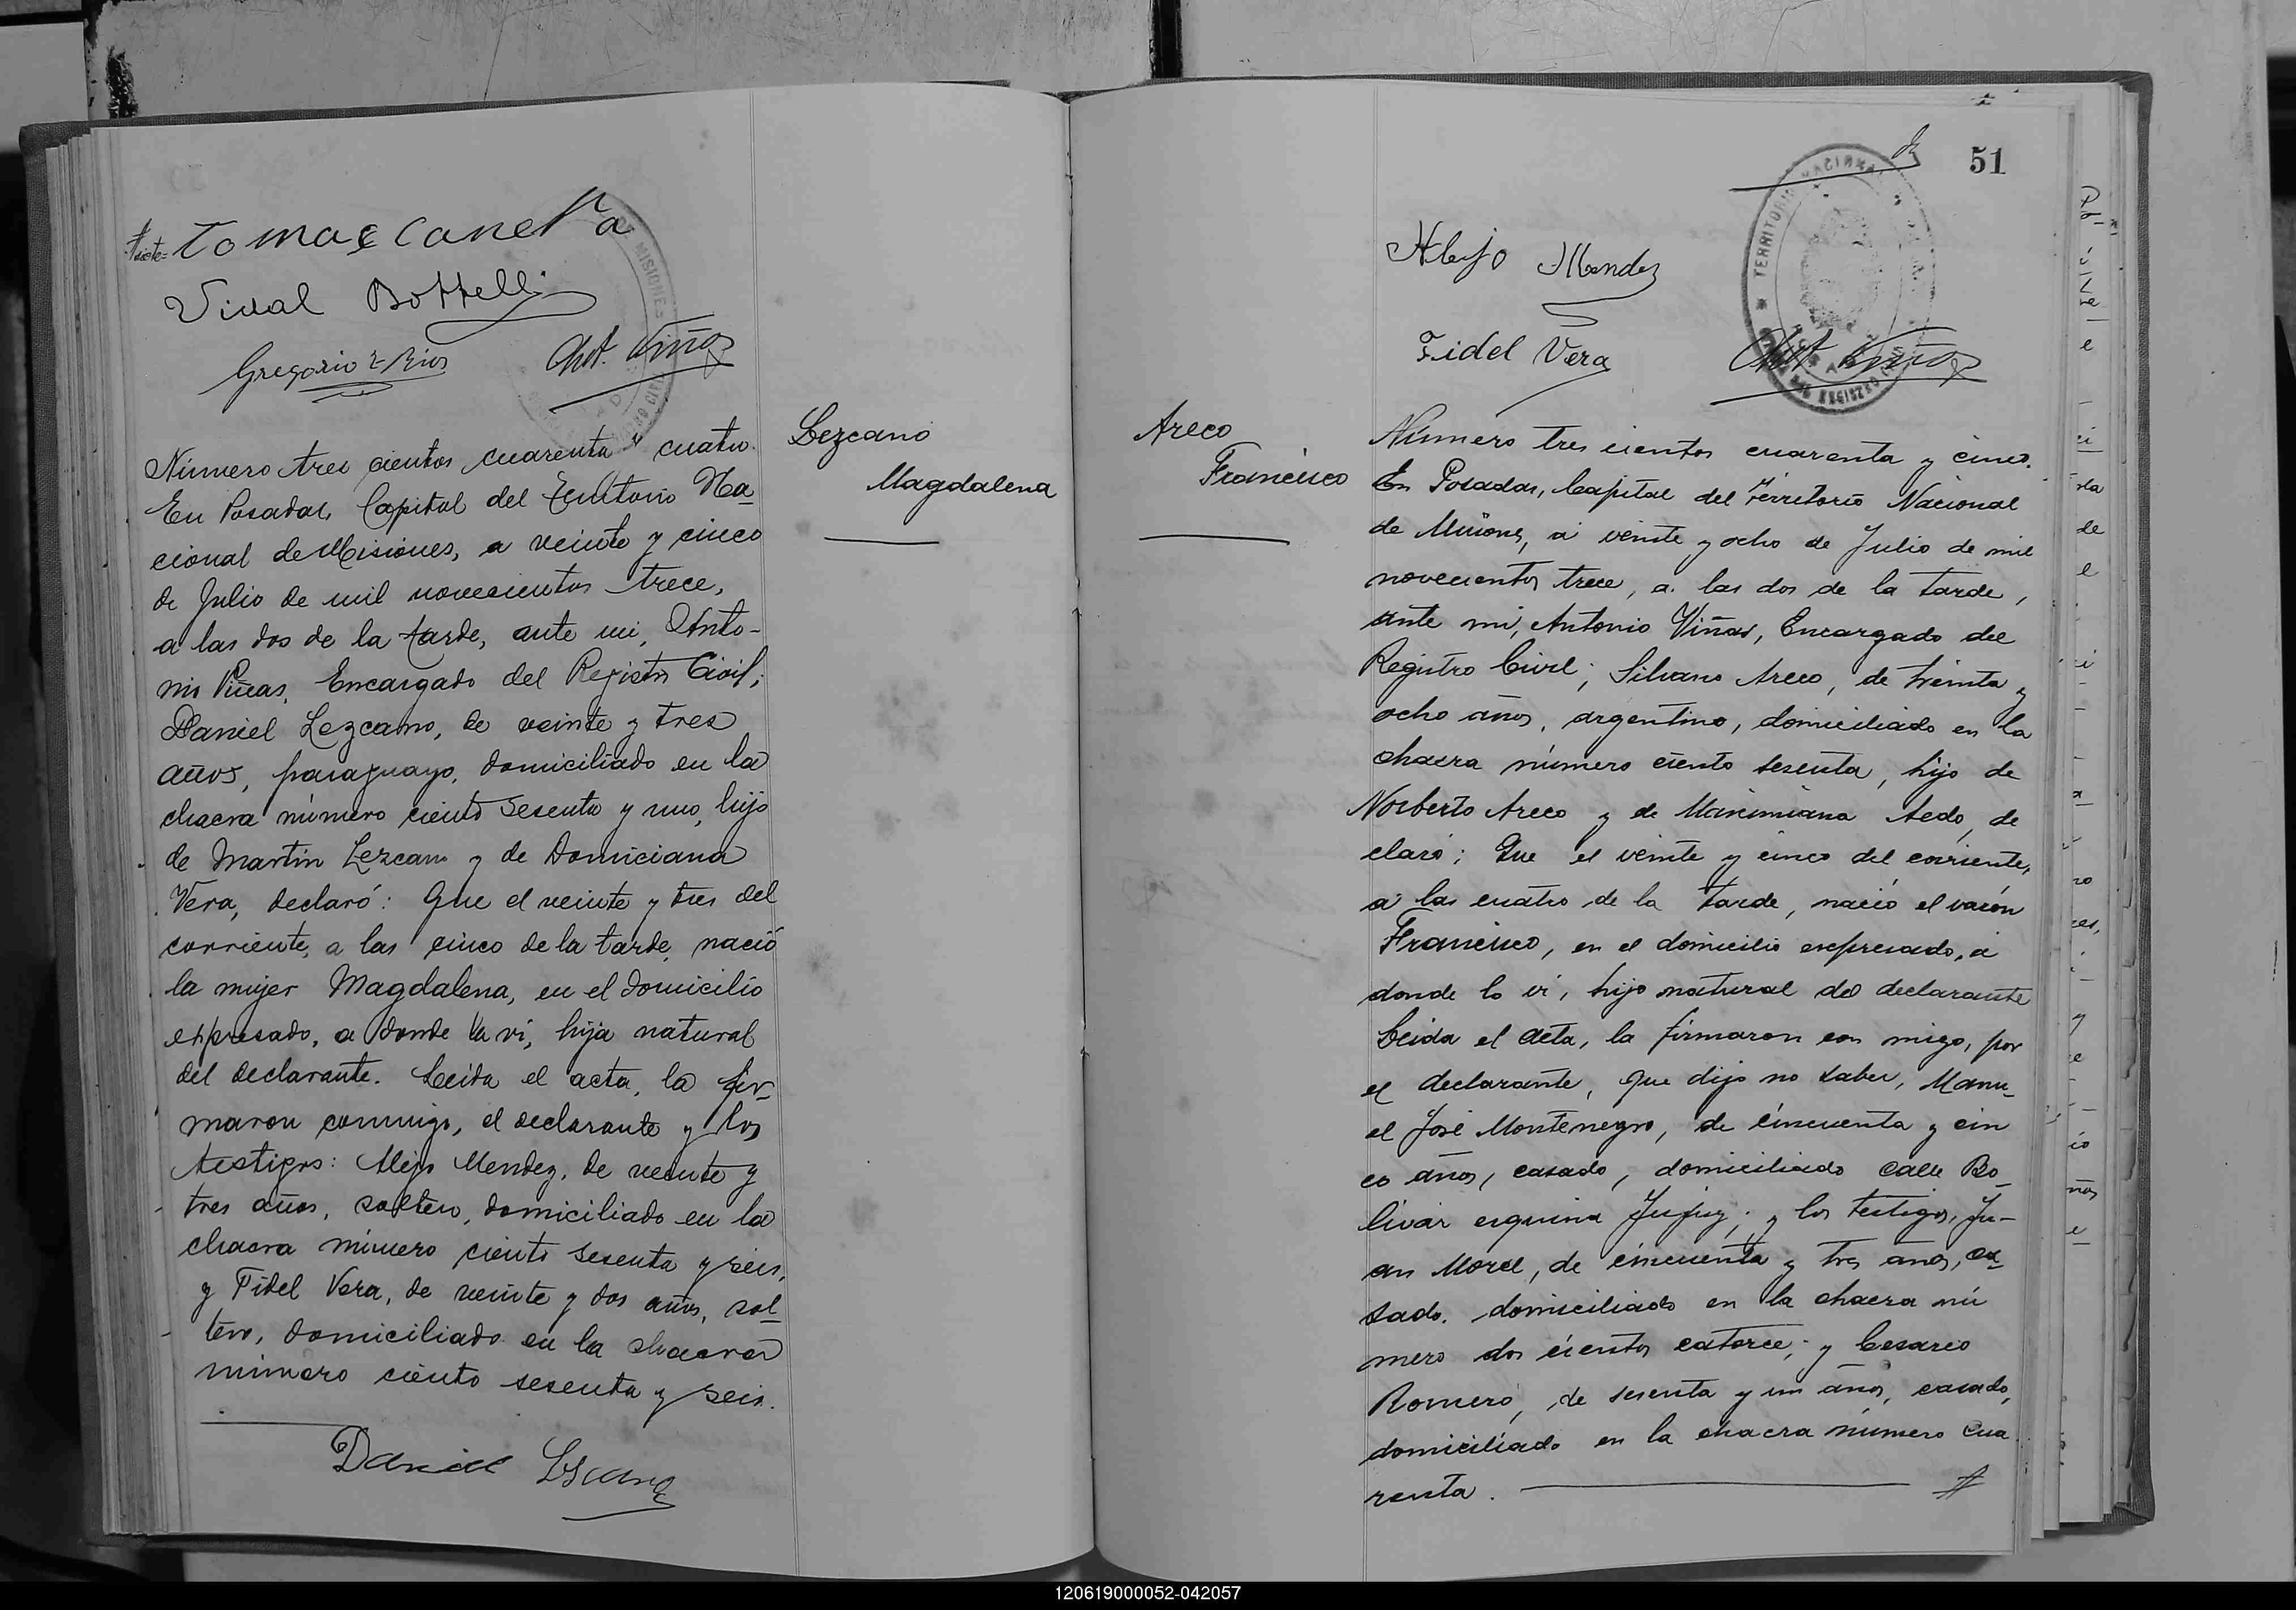 Tomas Canella
Vidal Bottelli
Gregorio E Rios
Ant. Viñas
Número tres cientos cuarenta y cuatro.
En Posadas, Capital del Territorio Na
cional de Misiones, a veinte y cinco
de Julio de mil novecientos trece,
a las dos de la tarde, ante mi, Anto-
nio Viñas, Encargado del Registro Civil;
Daniel Lezcano, de veinte y tres
años, paraguayo, domiciliado en la
chacra número ciento sesenta y uno, hijo
de Martin Lezcano y de Domiciana
Vera, declaró: Que el veinte y tres del
corriente, a las cinco de la tarde, nació
la mujer Magdalena, en el domicilio
expresado, a donde la vi, hija natural
del declarante. Leida el acta, la fir-
maron conmigo, el declarante y los
testigos: Alejo Mendez, de veinte y
tres años, soltero, domiciliado en la
chacra número ciento sesenta y seis,
y Fidel Vera, de veinte y dos años, sol-
tero, domiciliado en la chacra
número ciento sesenta y seis.
Daniel Lescano
Lezcano
Magdalena
51
TERRITORIO NACIONAL
MISIONES
Alejo Mendez
Fidel Vera
Ant. Viñas
Areco
Francisco
Número tres cientos cuarenta y cinco.
En Posadas, Capital del Territorio Nacional
de Misiones, a veinte y ocho de Julio de mil
novecientos trece, a las dos de la tarde,
ante mi, Antonio Viñas, Encargado del
Registro Civil; Silvano Areco, de treinta y
ocho años, argentino, domiciliado en la
chacra número ciento sesenta, hijo de
Norberto Areco y de Maximiana Aedo, de
claró: Que el veinte y cinco del corriente,
a las cuatro de la tarde, nació el varón
Francisco, en el domicilio expresado, a
donde lo vi, hijo natural del declarante
Leida el acta, la firmaron con migo, por
el declarante, que dijo no saber, Manu-
el José Montenegro, de cincuenta y cin
co años, casado, domiciliado calle Bo-
livar esquina Jujuy; y los testigos, Ju-
an Morel, de cincuenta y tres años, ca-
sado, domiciliado en la chacra nú
mero dos cientos catorce; y Cesareo
Romero, de sesenta y un años, casado,
domiciliado en la chacra número cua
renta.
120619000052-042057